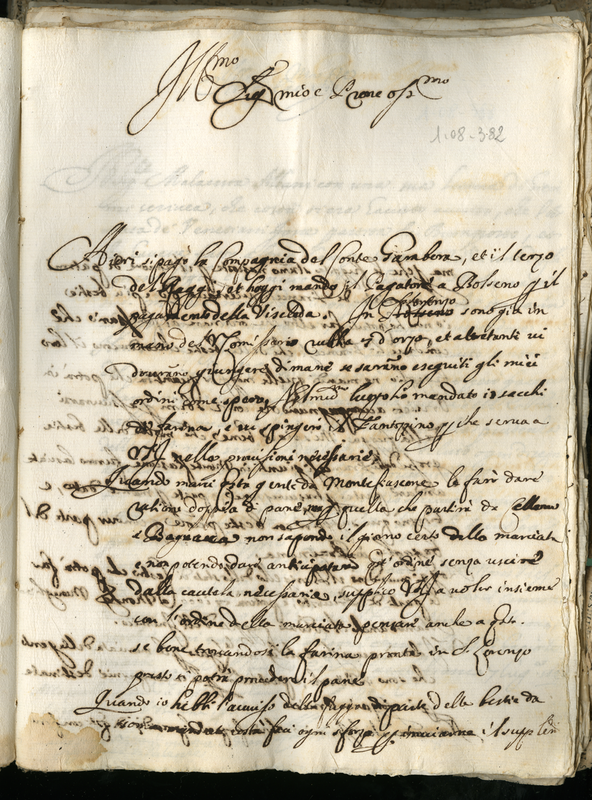 Ill.mo
Sig.r mio e Prone oss.mo
1-08-3-82
Hieri si pago la Compagnia del Conte Gambera, et il terzo
del Raggi, et hoggi mando il Pagatore a Bolseno p il
pagamento della Viscida. In S. Lorenzo sono gia in
mano del Comissario rubbia d'orzo, et altretanti vi
dovranno giungere dimane se saranno eseguiti gli miei
ordini come spero. Al med.mo luogo ho mandato sacchi
di farina, e vi spingero il Fantoccino p che serva a
VS nelle provisioni necessarie.
Quando marci gente da Montefiascone le farò dare
ratione doppia di pane, ma p quella che partirà da Cellano
e Bagnaia non sapendo il giorno certo della marciata
e non potendo dare anticipatam.te ordine senza uscire
dalla cautela necessaria, supplico VS a voler insieme
con l'ordine della marciata pensare anche a q.sto.
se bene trovandosi la farina pronta in S. Lorenzo
presto si potrà provedere il pane
Quando io hebbi l'avviso della fuga di parte delle bestie da
mandate costà feci ogni sforzo p inviarne il supplim